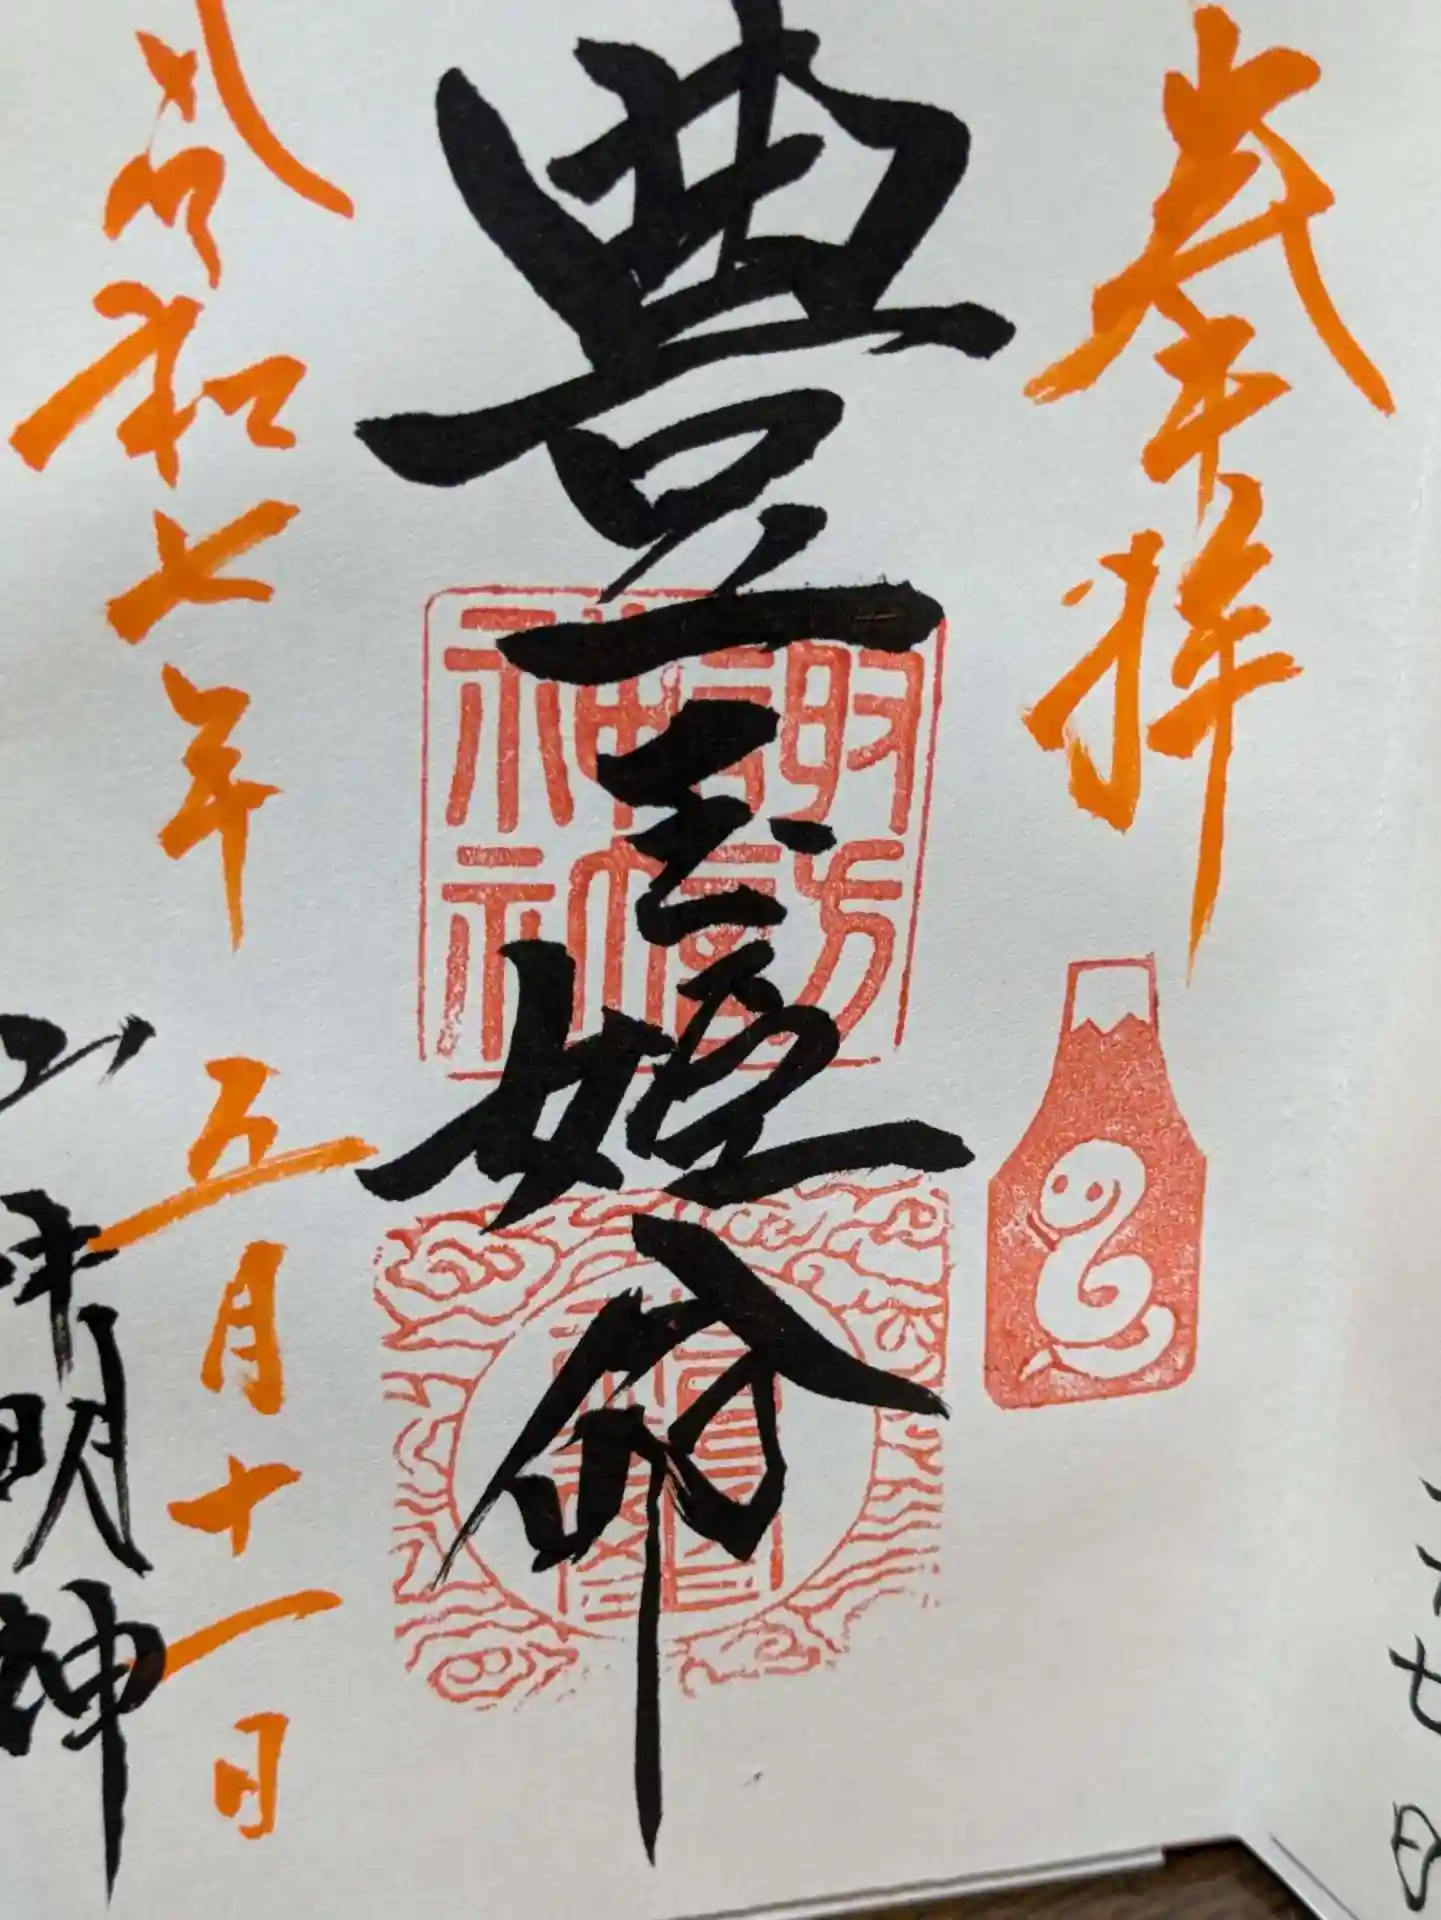 奉拝
豊玉姫命
諏訪神社
令和七年
五月十一日
明神
七日